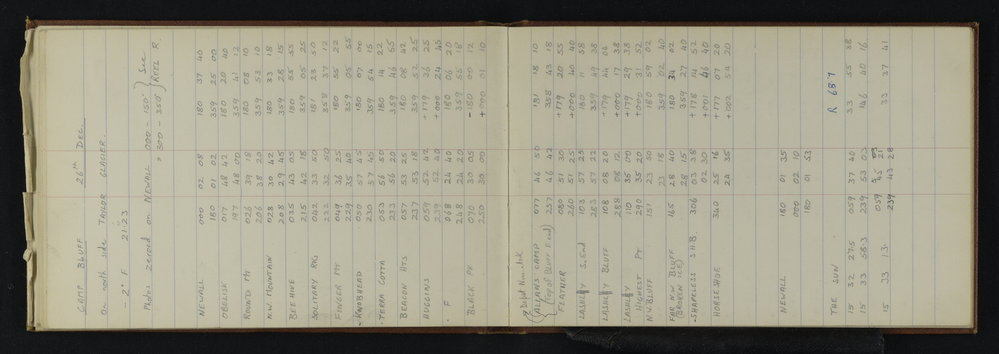 CAMP BLUFF 26th DEC.
On north side TAYLOR GLACIER.
- 2° F 21:23
Photos zeroed on NEWALL 000 - 150° } See
" 300 - 350° } REEL R.
NEWALL 000 02 08 180 37 40
180 01 02 359 25 00
OBELISK 017 48 42 180 20 40
197 48 00 359 41 12
ROUND MT 026 39 18 180 08 10
206 38 20 359 53 10
N.W. MOUNTAIN 028 30 42 180 33 18
208 29 45 359 28 15
BEEHIVE 035 43 05 180 55
215 42 18 359 05 25
SOLITARY RKS 042 33 50 181 23 50
222 32 50 358 37 12
FINGER MT 049 36 25 180 55 22
229 35 40 359 05 55
KNOBHEAD 050 57 45 180 07 00
230 57 45 359 54 15
TERRA COTTA 053 56 50 180 14 22
233 56 20 359 46
BEACON HTS 057 53 25 180 08 42
237 53 18 359 52 25
HUGGINS 059 52 42 +179 36 25
239 52 40 +000 24 45
F 068 24 40 180 06 20
248 24 20 359 55 18
BLACK PK 070 30 05 -180 00 12
250 30 00 +000 01 10
Depot Nunatak
{ ALLAN'S CAMP 077 46 50 181 18 10
(Top of Bluff E end) 257 46 42 358 43 18
FEATHER 080 51 30 +179 20 55
260 51 25 +000 40 40
LASHLEY S. End 103 57 25 180 11 58
283 57 22 359 49 38
LASHLEY BLUFF 108 08 20 +179 44 06
288 08 12 +000 17 38
LASHLEY 110 35 00 +179 29 38
HIGHEST PT 290 35 20 +000 31 52
N.V. BLUFF 151 23 50 180 59 02
23 18 359 02 40
FAR N.W BLUFF 165 28 40 180 34 02
(BROKEN ICE) 28 15 359 27 40
SHAPELESS S.H.B. 306 03 38 +178 14 52
02 30 +001 46 40
HORSESHOE 340 25 16 +177 07 20
24 35 +002 54 20
NEWALL 180 01 35
000 02 10
180 01 53
THE SUN R 687
15 32 27.5 059 37 40 33 55 38
15 33 58.3 239 53 03 146 40 16
059 45 21
15 33 13 239 43 28 33 37 41